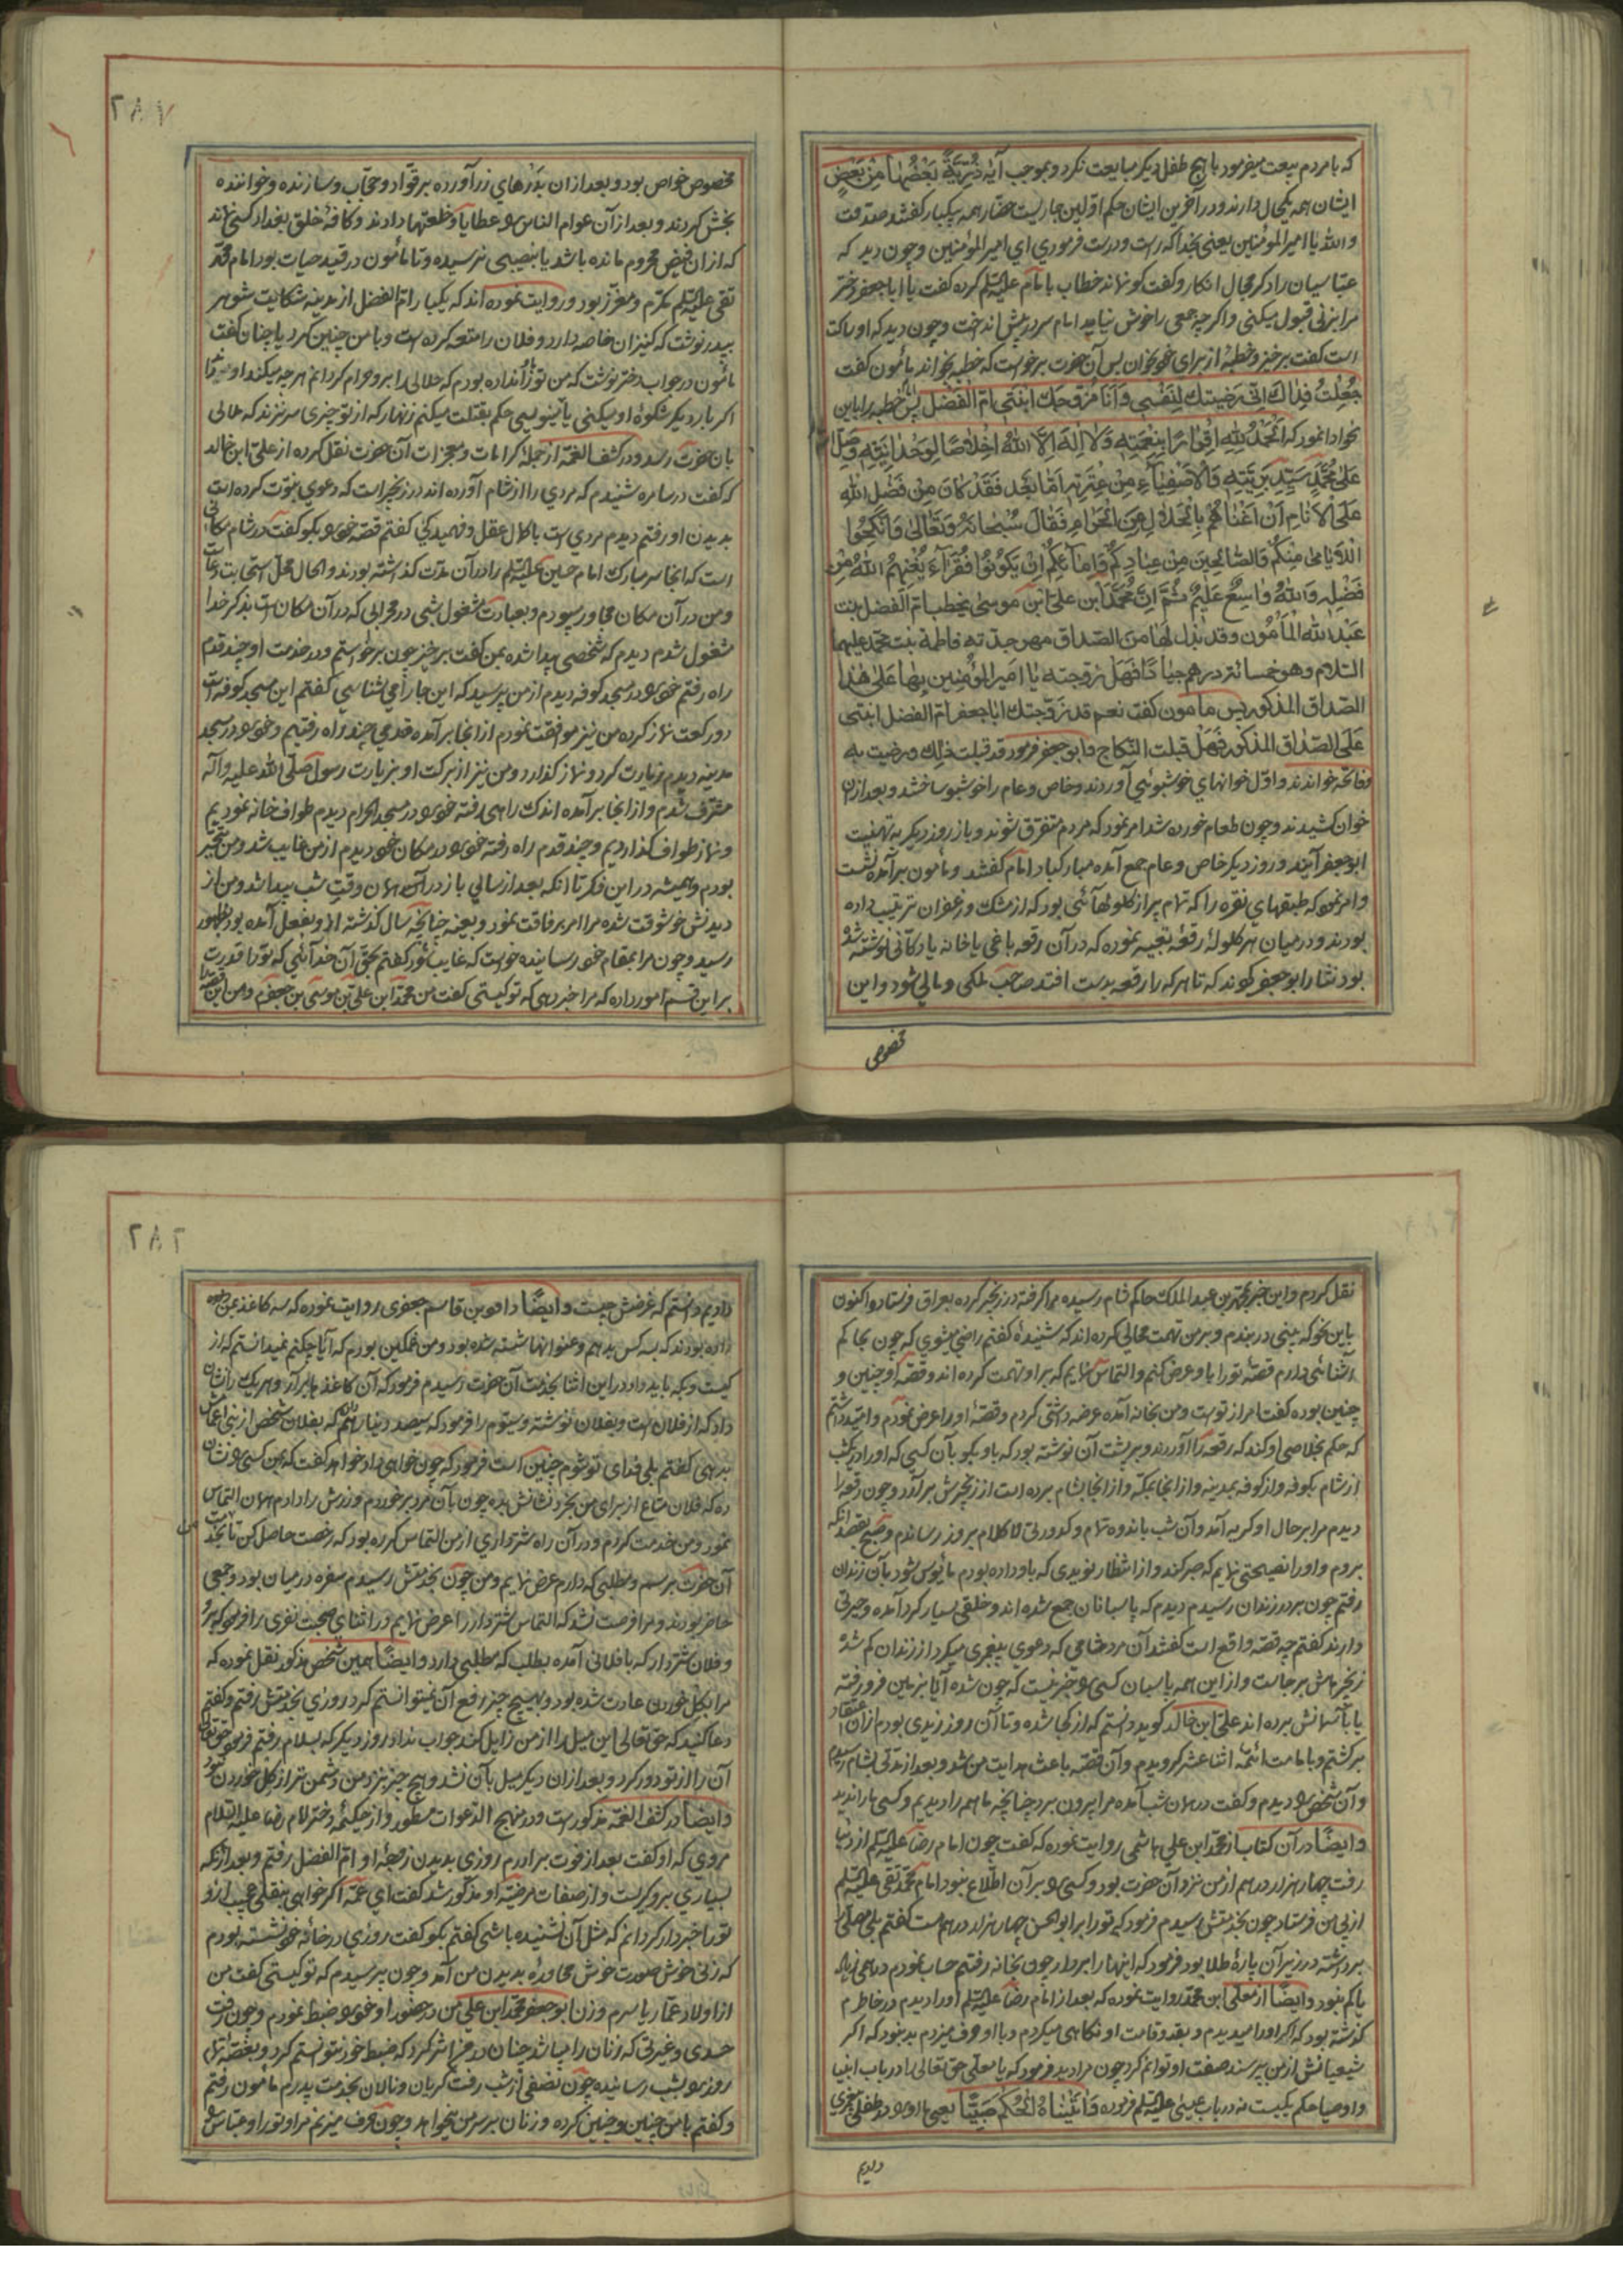 که بامردم بیعت میفرمود با هیچ طفل دیگر مبایعت نکرد و بموجب آیهٔ ذُرِّیَّةً بَعْضُهَا مِنْ بَعْضٍ
ایشان همه یکحال دارند و در آخرین ایشان حکم اولین جاریست حضار همه بیکبار گفتند صدقت
والله یا امیر المؤمنین یعنی بخدا که راست و درست فرمودی ای امیر المؤمنین و چون دید که
عباسیان را دکر مجال انکار و گفت کو نماند خطاب بامام علیه السلم کرده گفت یا ابا جعفر دختر
مرا بزنی قبول میکنی و اگرچه جمعی را خوش نیاید امام سر در پیش انداخت و چون دید که او ساکت
است گفت برخیز و خطبه از برای خود بخوان پس آن حضرت برخواست که خطبه بخواند مأمون گفت
جُعِلْتُ فِدَاكَ اِنِّی رَضِیتُكَ لِنَفْسِی وَ اَنَا مُزَوِّجُكَ ابْنَتِی اُمَّ الْفَضْلِ پس خطبه را باین
نحو ادا نمود که اَلْحَمْدُ لِلّهِ اِقْرَارًا بِنِعْمَتِهِ وَ لَا اِلهَ اِلَّا اللهُ اِخْلَاصًا لِوَحْدَانِیَّتِهِ وَ صَلَّی الله
عَلَی مُحَمَّدٍ سَیِّدِ بَرِیَّتِهِ وَ الْاَصْفِیَاءِ مِنْ عِتْرَتِهِ اَمَّا بَعْد فَقَدْ کَانَ مِنْ فَضْلِ اللهِ
عَلَی الْاَنَامِ اَنْ اَغْنَاهُمْ بِالْحَلَالِ عَنِ الْحَرَامِ فَقَالَ سُبْحَانَهُ وَ تَعَالَی وَ اَنْکِحُوا
الْاَیَامَی مِنْکُمْ وَ الصَّالِحِینَ مِنْ عِبَادِکُمْ وَ اِمَائِکُمْ اِنْ یَکُونُوا فُقَرَاءَ یُغْنِهِمُ اللهُ مِنْ
فَضْلِهِ وَ اللهُ وَاسِعٌ عَلِیمٌ ثُمَّ اِنَّ مُحَمَّدَ ابن علی ابن موسی یخطب ام الفضل بنت
عبد الله المأمون و قد بذل لها من الصداق مهر جدته فاطمة بنت محمد علیهما
السلام و هو خمسائة درهم جیادًا فهل زوجته یا امیر المؤمنین بها علی هذا
الصداق المذکور پس مامون گفت نعم قد زوجتك ابا جعفر ام الفضل ابنتی
علی الصداق المذکور فهل قبلت النکاح و ابو جعفر فرمود قد قبلت ذلك و رضیت به
و فاتحه خواندند و اول خوانهای خوشبوئی آوردند و خاص و عام را خوشبو ساختند و بعد از آن
خوان کشیدند و چون طعام خورده شد امر نمود که مردم متفرق شوند و باز روز دیگر به تهنیت
ابو جعفر آیند و روز دیگر خاص و عام جمع آمده مبارکباد امام گفتند و مأمون برآمده نشست
و امر نمود که طبقهای نقره را که تمام پر از کلولهائی بود که از مشک و زعفران ترتیب داده
بودند و در میان هر کلولهٔ رقعهٔ تعبیه نموده که در آن رقعه باغی یا خانه یا دکانی نوشته شده
بود نثار ابو جعفر کوند که تا هر که را رقعه بدست افتد صاحب ملکی و مالی شود و این
مخصوص
۲۸۷
مخصوص خواص بود و بعد از ان بدرهای زر آورده بر قواد و حجاب و سازنده و خواننده
بخش کردند و بعد از آن عوام الناس را عطایا و خلعتها دادند و کافهٔ خلق بغداد کسی نماند
که از ان فیض محروم مانده باشد یا بنصیبی نرسیده و تا مأمون در قید حیات بود امام محمد
تقی علیه السلم مکرم و معزز بود و روایت نموده اند که یکبار ام الفضل از مدینه شکایت شوهر
بپدر نوشت که کنیزان خاصه دارد و فلان را متعه کرده است و با من چنین کرد یا چنان گفت
مأمون در جواب دختر نوشت که من تو را نداده بودم که حلالی را بر و حرام کردانم هرچه میکند او میداند
اگر بار دیگر شکوهٔ او میکنی یا مینویسی حکم بقتلت میکنم زنهار که از تو چیزی سر نزند که ملالی
بان حضرت رسد و در کشف الغمه از جمله کرامات و معجزات آن حضرت نقل کرده از علی ابن خالد
که گفت در سامره شنیدم که مردی را از شام آورده اند در زنجیر است که دعوی نبوت کرده است
بدیدن او رفتم دیدم مردی است با کمال عقل و فهمیدگی گفتم قصه خود را بکو گفت در شام مکانی
است که انجا سر مبارك امام حسین علیه السلم را در آن مدت گذاشته بودند و الحال محل استجابت دعا است
و من در آن مکان مجاور میبودم و بعبادت مشغول شبی در محرابی که در آن مکان است بذکر خدا
مشغول شدم دیدم که شخصی پیدا شده بمن گفت برخیز چون برخواستم و در خدمت او چند قدم
راه رفتم خود را در مسجد کوفه دیدم از من پرسید که این جا را می شناسی گفتم این مسجد کوفه است
دو رکعت نماز کرده من نیز موافقت نمودم از انجا بر آمده قدمی چند راه رفتیم و خود را در مسجد
مدینه دیدم زیارت کرد و نماز گذارد و من نیز از برکت او بزیارت رسول صلی الله علیه و آله
مشرف شدم و از انجا برآمده اندك راهی رفته خود را در مسجد الحرام دیدم طواف خانه نمودیم
و نماز طواف گذاردیم و چند قدم راه رفته خود را در مکان خود دیدم از من غایب شد و من متحیر
بودم و همیشه در این فکر تا انکه بعد از سالی باز در آن همان وقت شب پیدا شد و من از
دیدنش خوشوقت شده مرا امر برفاقت نمود و بعینه چنانچه سال گذشته از و بفعل آمده بود بظهور
رسید و چون مرا بمقام خود رسانیده خواست که غایب شود گفتم بحق آن خدائی که تو را قدرت
بر این قسم امور داده که مرا خبر دهی که تو کیستی گفت من محمد ابن علی بن موسی بن جعفرم و من این قصه را
نقل کردم و این خبر بمحمد بن عبد الملك حاکم شام رسیده مرا گرفته در زنجیر کرده بعراق فرستاد و اکنون
باین نحو که می بینی در بندم و بر من تهمت محالی کرده اند که شنیدهٔ گفتم راضی میشوی که چون بحاکم
آشنائی دارم قصهٔ تو را باو عرض کنم و التماس نمایم که بر او تهمت کرده اند و قصه او چنین و
چنین بوده گفت امر از توست و من بخانه آمده عرضه داشتی کردم و قصهٔ او را عرض نمودم و امید داشتم
که حکم بخلاصی او کند که رقعهٔ را آوردند و بر پشت آن نوشته بود که باو بکو بآن کسی که او را در یکشب
از شام بکوفه و از کوفه بمدینه و از انجا بمکه و از انجا بشام برده است از زنجیرش بر آرد و چون رقعه را
دیدم مرا بر حال او گریه آمد و آن شب باندوه تمام و کدورتی لا کلام بروز رساندم و صبح بقصد انکه
بروم و او را نصیحتی نمایم که صبر کند و از انتظار نویدی که باو داده بودم مأیوس شود بآن زندان
رفتم چون بر در زندان رسیدم دیدم که پاسبانان جمع شده اند و خلقی بسیار گرد آمده و حیرتی
دارند گفتم چه قصه واقع است گفتند آن مرد شامی که دعوی پیغمبری میکرد از زندان گم شده
زنجیرهاش بر جاست و از این همه پاسبان کسی را خبر نیست که چون شده آیا بزمین فرو رفته
یا بآسمانش برده اند علی ابن خالد کوید دانستم که از کجا شده و تا آن روز زیدی بودم از ان اعتقاد
برگشتم و بامامت ائمهٔ اثنا عشر گرویدم و آن قصه باعث هدایت من شد و بعد از مدتی بشام رسیدم
و آن شخص را دیدم و گفت در همان شب آمده مرا بیرون برد چنانچه ما همه را دیدیم و کسی ما را ندید
و ایضًا در آن کتاب از محمد ابن علی هاشمی روایت نموده که گفت چون امام رضا علیه السلم از دنیا
رفت چهار هزار درهم از من نزد آن حضرت بود و کسی را بر آن اطلاع نبود امام محمد تقی علیه السلم
از پی من فرستاد چون بخدمتش رسیدم فرمود که تو را بر ابو الحسن چهار هزار درهم هست گفتم بلی مصلی را
برداشته در زیر آن پارهٔ طلا بود فرمود که اینها را بردار چون بخانه رفتم حساب نمودم درهمی زیاد
یا کم نبود و ایضًا از معلی ابن محمد روایت نموده که بعد از امام رضا علیه السلم او را دیدم در خاطرم
گذشته بود که اگر او را میدیدم و بقد و قامت او نکاهی میکردم و با او حرف میزدم بد نبود که اگر
شیعیانش از من پرسند صفت او توانم کرد چون مرا دید فرمود که یا معلی حق تعالی را در باب انبیا
و اوصیا حکم یکیست نه در باب عیسی علیه السلم فرموده وَ آتَیْنَاهُ الْحُکْمَ صَبِیًّا یعنی ما او را در طفلی پیغمبری
دادیم
۲۸۲
دادیم دانستم که غرضش چیست و ایضًا داود بن قاسم جعفری روایت نموده که سه کاغذ بمن
داده بودند که بسه کس بدهم و عنوانها شسته شده بود و من غمگین بودم که آیا چکنم نمیدانستم که از
کیست و بکه باید داد در این اثنا بخدمت آن حضرت رسیدم فرمود که آن کاغذها برآر و هر یك را نشان
داد که از فلان است و بفلان نوشته و سیوم را فرمود که سیصد دینار هم که بفلان شخص از بنی اعمامش
بدهی گفتم بلی فدای تو شوم چنین است فرمود که چون خواهی داد خواهد گفت که بمن کسی را نشان
ده که فلان متاع از برای من بخرد نشانش بده چون بآن مرد برخوردم و زرش را دادم همان التماس
نمود و من خدمت کردم و در آن راه شترداری از من التماس کرده بود که رخصت حاصل کن تا بخدمت
آن حضرت برسم و مطلبی که دارم عرض نمایم و من چون بخدمتش رسیدم سفره در میان بود و جمعی
حاضر بودند و مرا فرصت نشد که التماس شتردار را عرض نمایم در اثنای صحبت نفری را فرمود که برو
و فلان شتردار که با فلانی آمده بطلب که مطلبی دارد و ایضًا همین شخص مذکور نقل نموده که
مرا بگل خوردن عادت شده بود و بهیچ چیز رفع آن نمیتوانستم کرد روزی بخدمتش رفتم و گفتم
دعا کنید که حق تعالی این میل را از من زایل کند جواب نداد روز دیگر که بسلام رفتم فرمود حق تعالی
آن را از تو دور کرد و بعد از ان دیگر میل بآن نشد و هیچ چیز نزد من دشمن تر از گل خوردن نبود
و ایضًا در کشف الغمه مذکور است و در منهج الدعوات مسطور و از حکیمهٔ دختر امام رضا علیه السلام
مروی که او گفت بعد از فوت برادرم روزی بدیدن زوجهٔ او ام الفضل رفتم و بعد از انکه
بسیاری بر و گریست و از صفات مرضیهٔ او مذکور شد گفت ای عمه اگر خواهی بنقلی عجیب از و
تو را خبردار کردانم که مثل آن نشنیده باشی گفتم بکو گفت روزی در خانهٔ خود نشسته بودم
که زنی خوش صورت خوش محاوره بدیدن من آمد و چون پرسیدم که تو کیستی گفت من
از اولاد عمار یاسرم و زن ابو جعفر محمد ابن علی من در حضور او خود را ضبط نمودم و چون رفت
حسدی و غیرتی که زنان را میباشد چنان در من اثر کرد که ضبط خود نتوانستم کرد و بغصه تمام
روز را بشب رسانیده چون نصفی از شب رفت گریان و نالان بخدمت پدرم مأمون رفتم
و گفتم با من چنین و چنین کرده و زنان بر سر من میخواهد و چون حرف میزنم مرا و تو را و عباس را